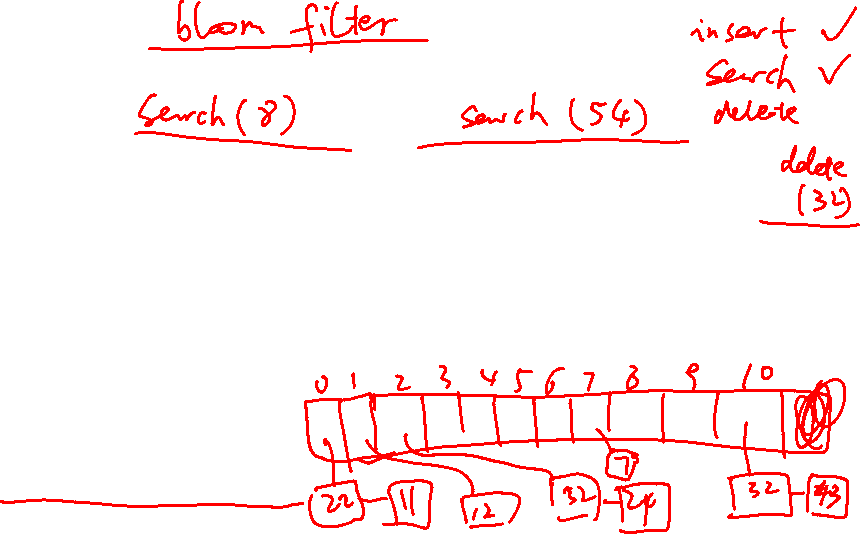 bloom filter
insert ✓
search ✓
delete
search (8)
search (54)
delete
(32)
0 1 2 3 4 5 6 7 8 9 10
7
22 11 12 32 24 32 43